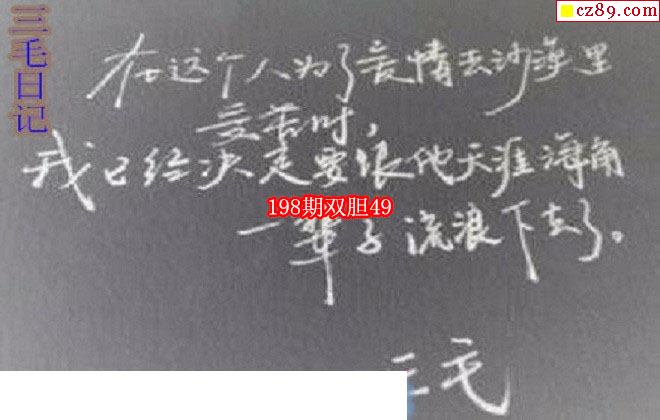 三毛日记
cz89.com
在这个人为了爱情去沙漠里
受苦时,
我已经决定要跟他天涯海角
198期双胆49
一辈子流浪下去了。
三毛